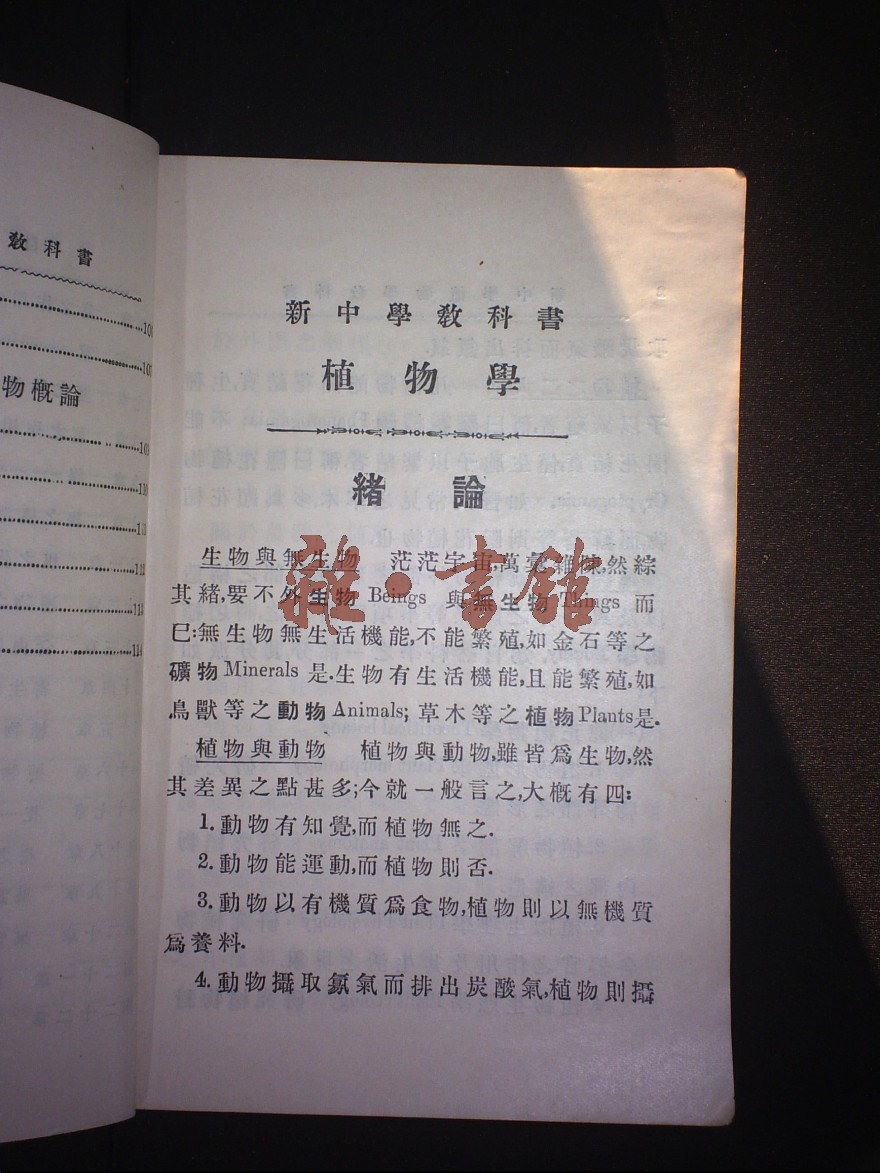 教科書
物概論
新中學教科書
植物學
緒論
生物與無生物 茫茫宇宙,萬彙雜陳,然綜
其緒,要不外生物 Beings 與無生物 Things 而
已:無生物無生活機能,不能繁殖,如金石等之
礦物 Minerals 是.生物有生活機能,且能繁殖,如
鳥獸等之動物 Animals; 草木等之植物 Plants是.
植物與動物 植物與動物,雖皆爲生物,然
其差異之點甚多;今就一般言之,大概有四:
1.動物有知覺,而植物無之.
2.動物能運動,而植物則否.
3.動物以有機質爲食物,植物則以無機質
爲養料.
4.動物攝取氣而排出炭酸氣,植物則攝
雜·書館